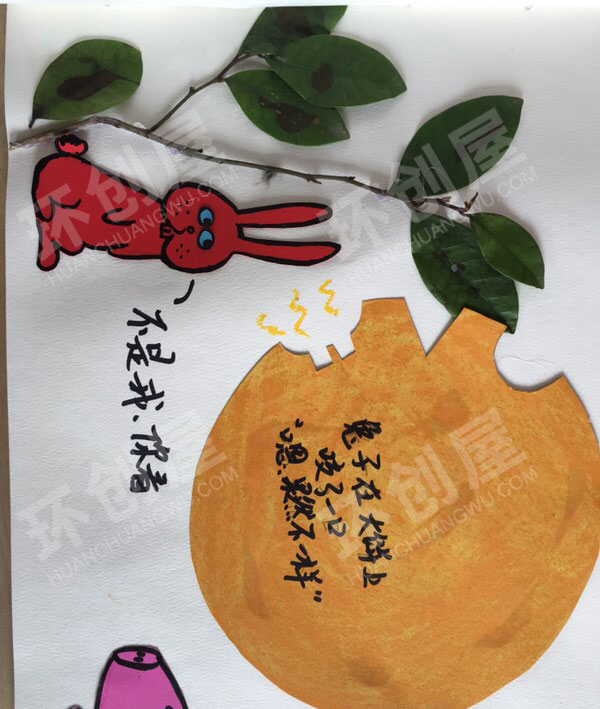 不是我、你看
兔子在大饼上
咬了一口
“嗯、果然不一样”
环创屋
HUANCHUANGWU.COM
环创屋
HUANCHUANGWU.COM
环创屋
HUANCHUANGWU.COM
环创屋
HUANCHUANGWU.COM